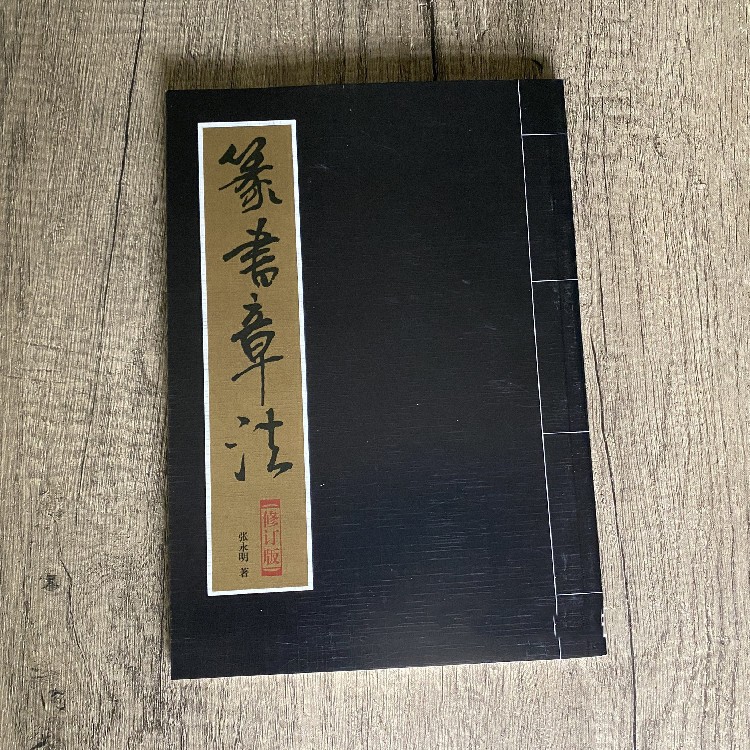 篆书章法
【修订版】
张永明 著